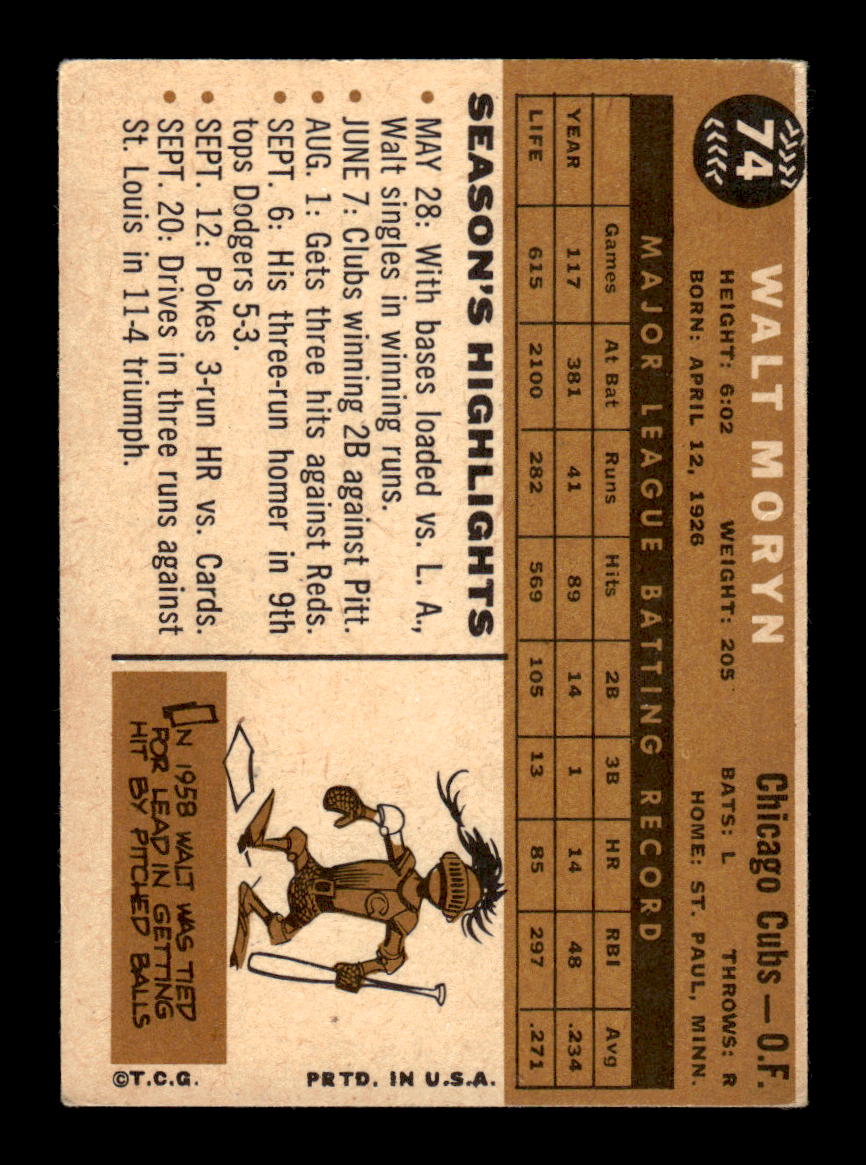 74
WALT MORYN
Chicago Cubs — O.F.
HEIGHT: 6:02 WEIGHT: 205 BATS: L THROWS: R
BORN: APRIL 12, 1926 HOME: ST. PAUL, MINN.
MAJOR LEAGUE BATTING RECORD
Games At Bat Runs Hits 2B 3B HR RBI Avg
YEAR 117 381 41 89 14 1 14 48 .234
LIFE 615 2100 282 569 105 13 85 297 .271
SEASON'S HIGHLIGHTS
• MAY 28: With bases loaded vs. L. A.,
Walt singles in winning runs.
• JUNE 7: Clubs winning 2B against Pitt.
• AUG. 1: Gets three hits against Reds.
• SEPT. 6: His three-run homer in 9th
tops Dodgers 5-3.
• SEPT. 12: Pokes 3-run HR vs. Cards.
• SEPT. 20: Drives in three runs against
St. Louis in 11-4 triumph.
C
IN 1958 WALT WAS TIED
FOR LEAD IN GETTING
HIT BY PITCHED BALLS
©T.C.G. PRTD. IN U.S.A.